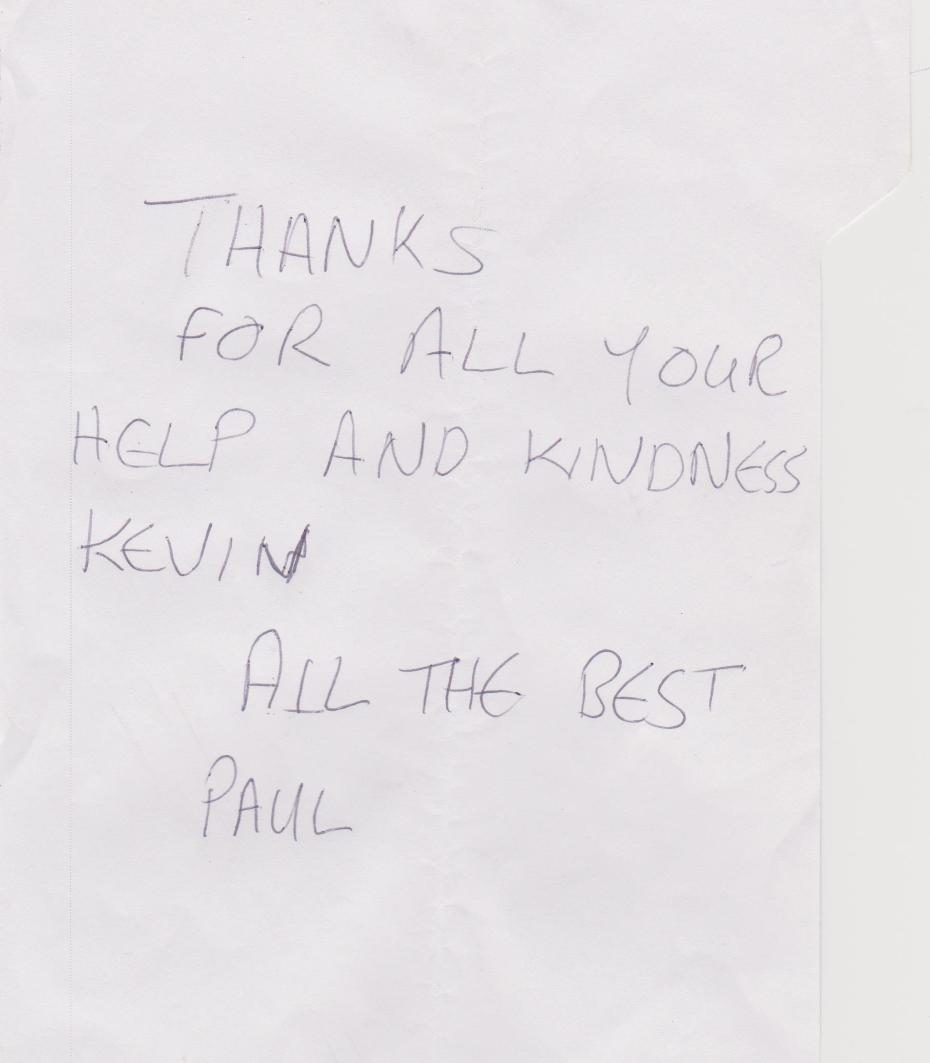 THANKS
FOR ALL YOUR
HELP AND KINDNESS
KEVIN
ALL THE BEST
PAUL